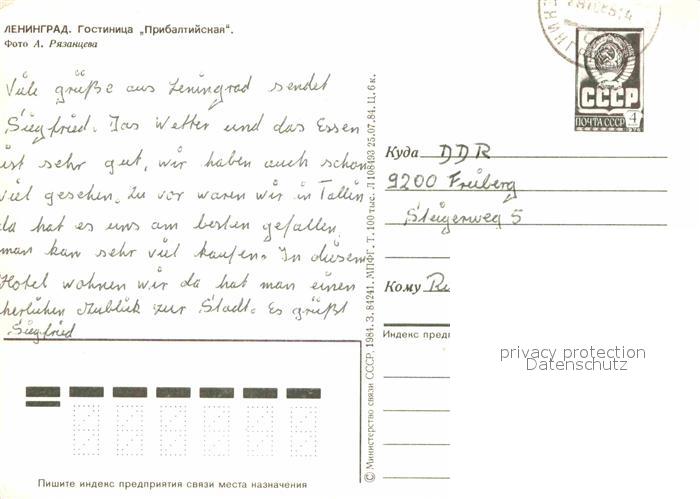 ЛЕНИНГРАД. Гостиница „Прибалтийская“.
Фото А. Рязанцева
Viele grüße aus Leningrad sendet
Siegfried. Das Wetter und das Essen
ist sehr gut, wir haben auch schon
viel gesehen. Zu vor waren wir in Tallin
da hat es uns am besten gefallen,
man kan sehr viel kaufen. In diesem
Hotel wohnen wir da hat man einen
herlichen Anblick zur Stadt. Es grüßt
Siegfried
Пишите индекс предприятия связи места назначения
© Министерство связи СССР. 1984. З. 84241. МПФГ. Т. 100 тыс. Л 108493 25.07.84. Ц. 6 к.
СССР
ПОЧТА СССР 4
1976
Куда DDR
9200 Freiberg
Steigerweg 5
Кому
Индекс предп
privacy protection
Datenschutz